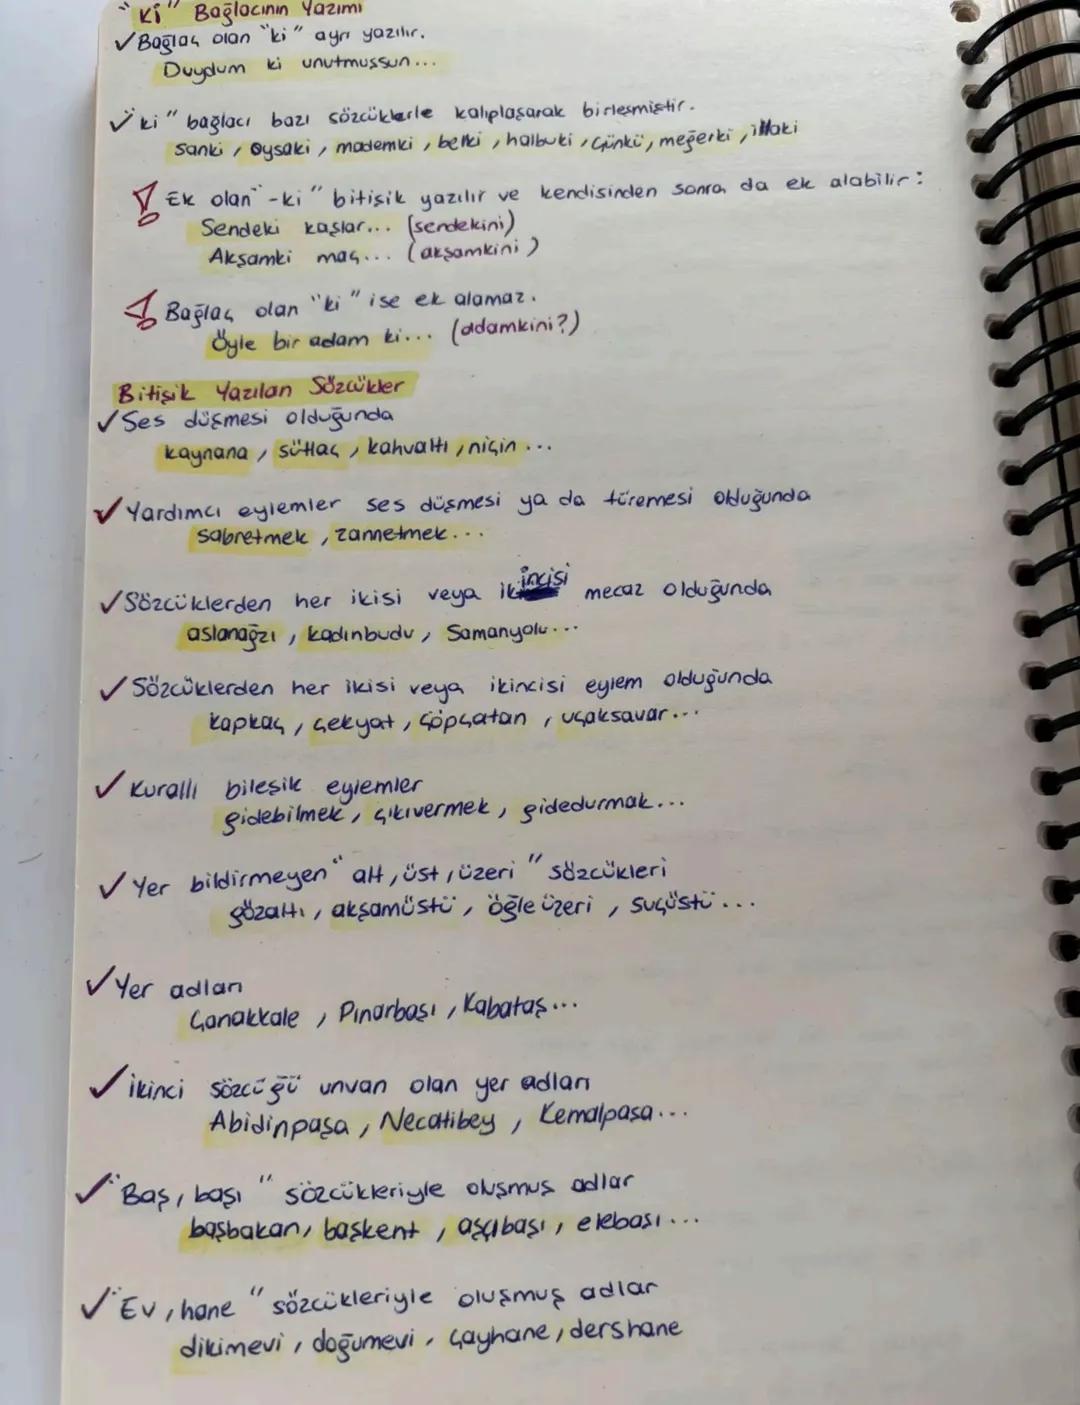 "Ki" Bağlacının Yazımı
✓Bağlaç olan "ki" ayrı yazılır.
Duydum ki unutmuşsun...
✓"ki" bağlacı bazı sözcüklerle kalıplaşarak birleşmiştir.
sanki, oysaki, mademki, belki, halbuki, çünkü, meğerki, illaki
Ek olan "-ki" bitişik yazılır ve kendisinden sonra da ek alabilir:
Sendeki kaşlar... (sendekini)
Akşamki maç... (akşamkini)
Bağlaç olan "ki" ise ek alamaz.
Öyle bir adam ki... (adamkini?)
Bitişik Yazılan Sözcükler
✓Ses düşmesi olduğunda
kaynana, sütlaç, kahvaltı, niçin...
✓Yardımcı eylemler ses düşmesi ya da türemesi olduğunda
sabretmek, zannetmek...
✓Sözcüklerden her ikisi veya ikincisi mecaz olduğunda
aslanağzı, kadınbudu, Samanyolu...
✓Sözcüklerden her ikisi veya ikincisi eylem olduğunda
kapkaç, çekyat, çöpçatan, uçaksavar...
✓Kurallı bileşik eylemler
gidebilmek, çıkıvermek, gidedurmak...
✓Yer bildirmeyen "alt, üst, üzeri" sözcükleri
gözaltı, akşamüstü, öğle üzeri, suçüstü...
✓Yer adları
Çanakkale, Pınarbaşı, Kabataş...
✓İkinci sözcüğü unvan olan yer adları
Abidinpaşa, Necatibey, Kemalpaşa...
✓"Baş, başı" sözcükleriyle oluşmuş adlar
başbakan, başkent, aşçıbaşı, elebaşı...
✓"Ev, hane" sözcükleriyle oluşmuş adlar
dikimevi, doğumevi, çayhane, dershane